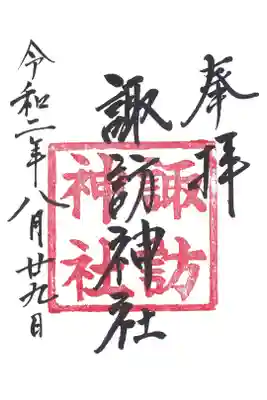 奉拝
諏訪神社
諏訪
神社
令和二年八月廿九日